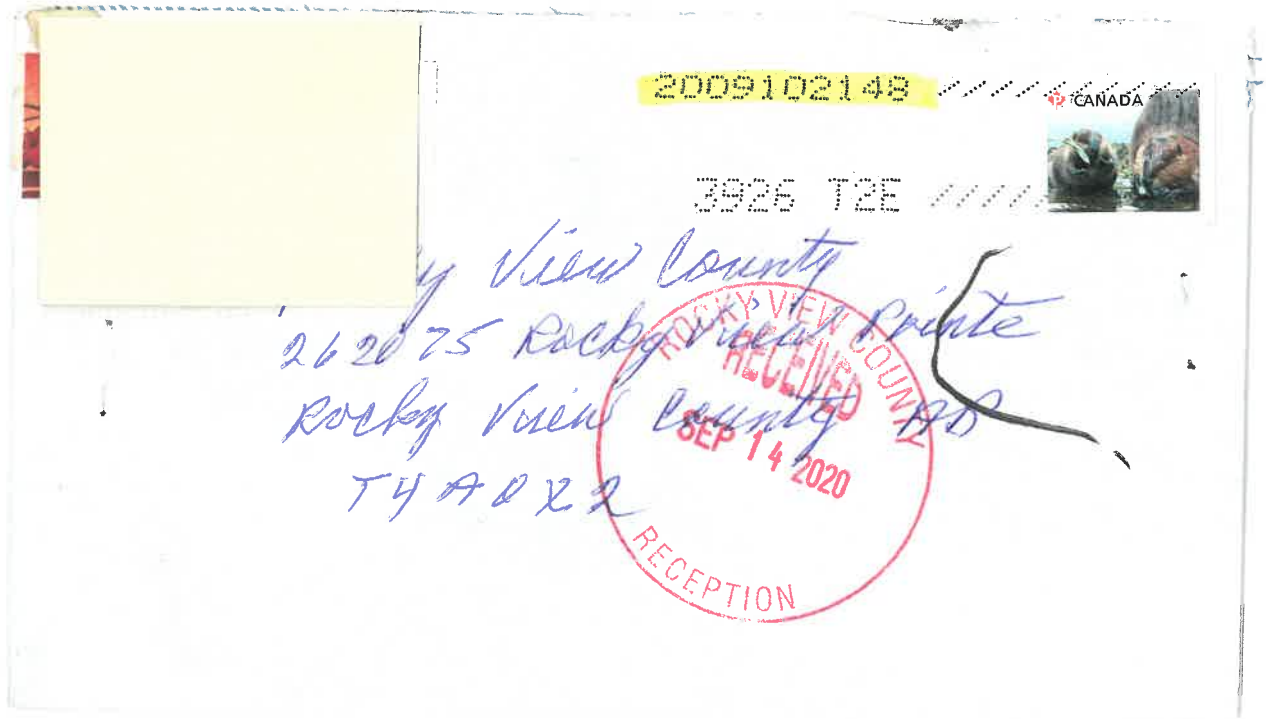 2009102148
P CANADA
3926 T2E
y View County
262075 Rocky View Pointe
Rocky View County AB
T4A 0X2
ROCKY VIEW COUNTY
RECEIVED
SEP 14 2020
RECEPTION